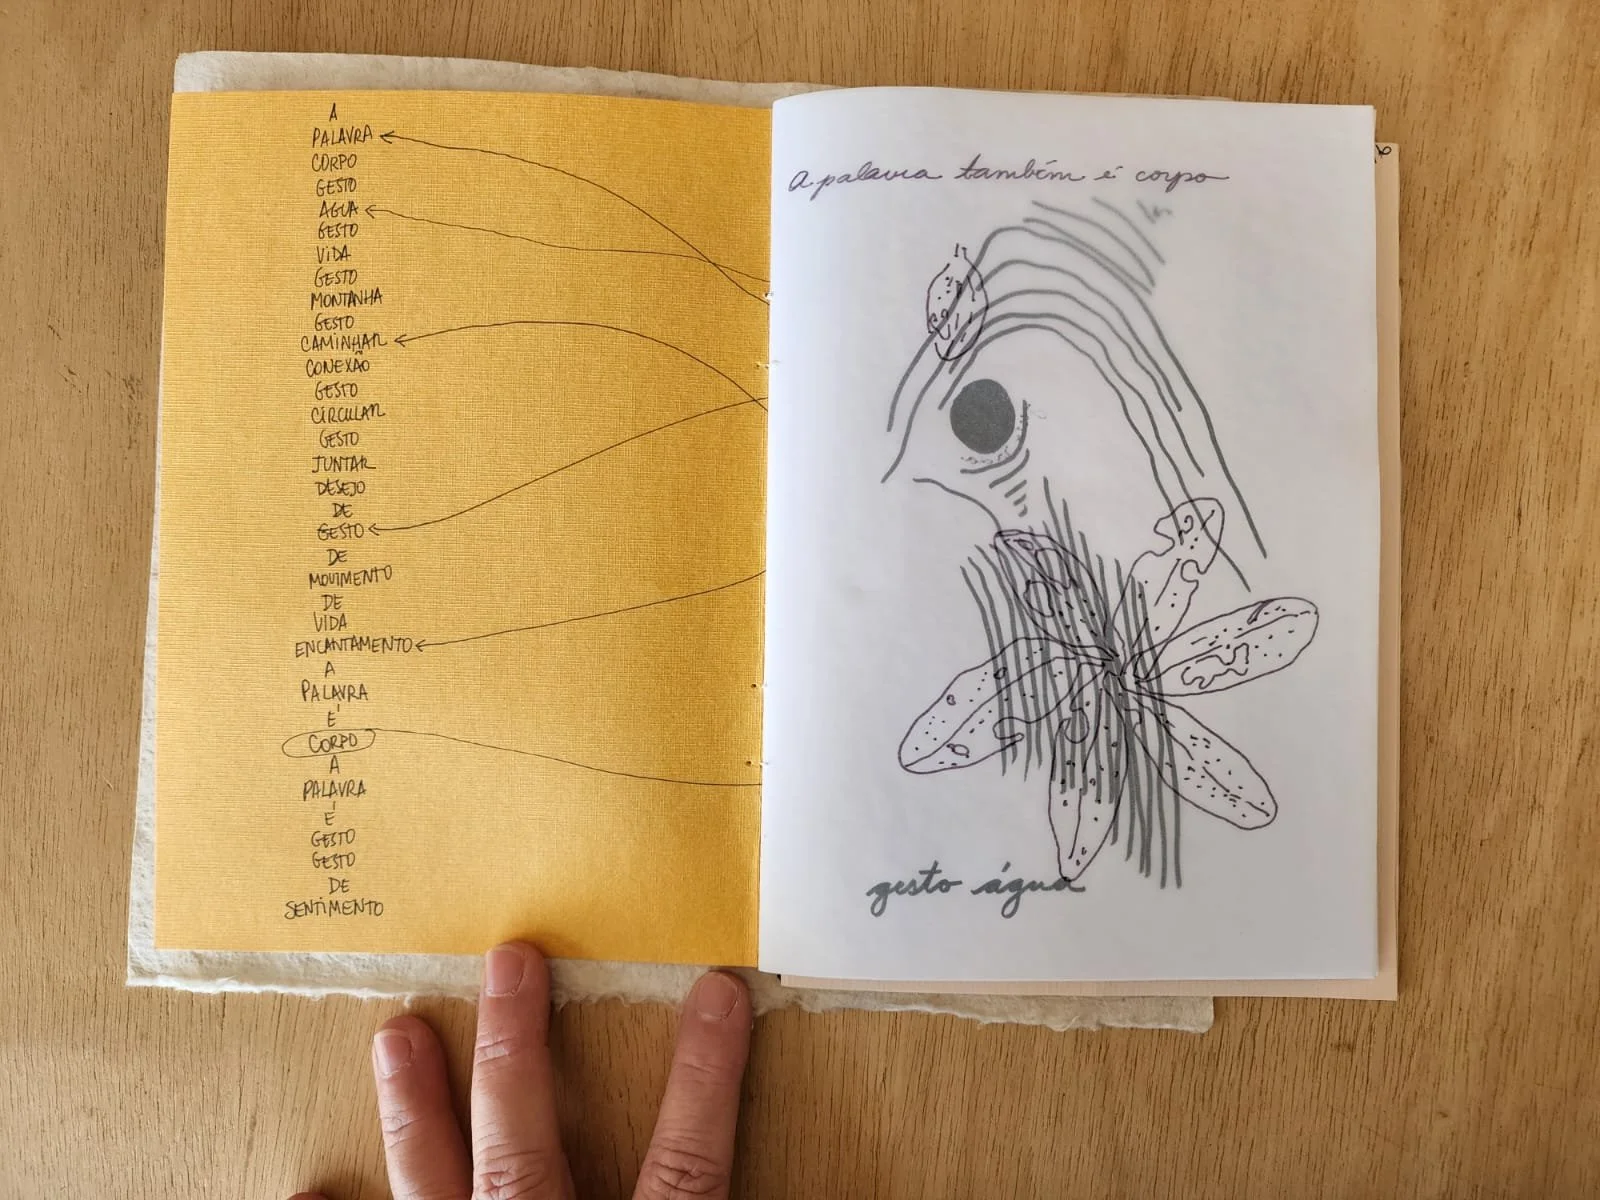 A
PALAVRA
CORPO
GESTO
ÁGUA
GESTO
VIDA
GESTO
MONTANHA
GESTO
CAMINHAR
CONEXÃO
GESTO
CIRCULAR
GESTO
JUNTAR
DESEJO
DE
GESTO
DE
MOVIMENTO
DE
VIDA
ENCANTAMENTO
A
PALAVRA
É
CORPO
A
PALAVRA
É
GESTO
GESTO
DE
SENTIMENTO
A palavra também é corpo
gesto água